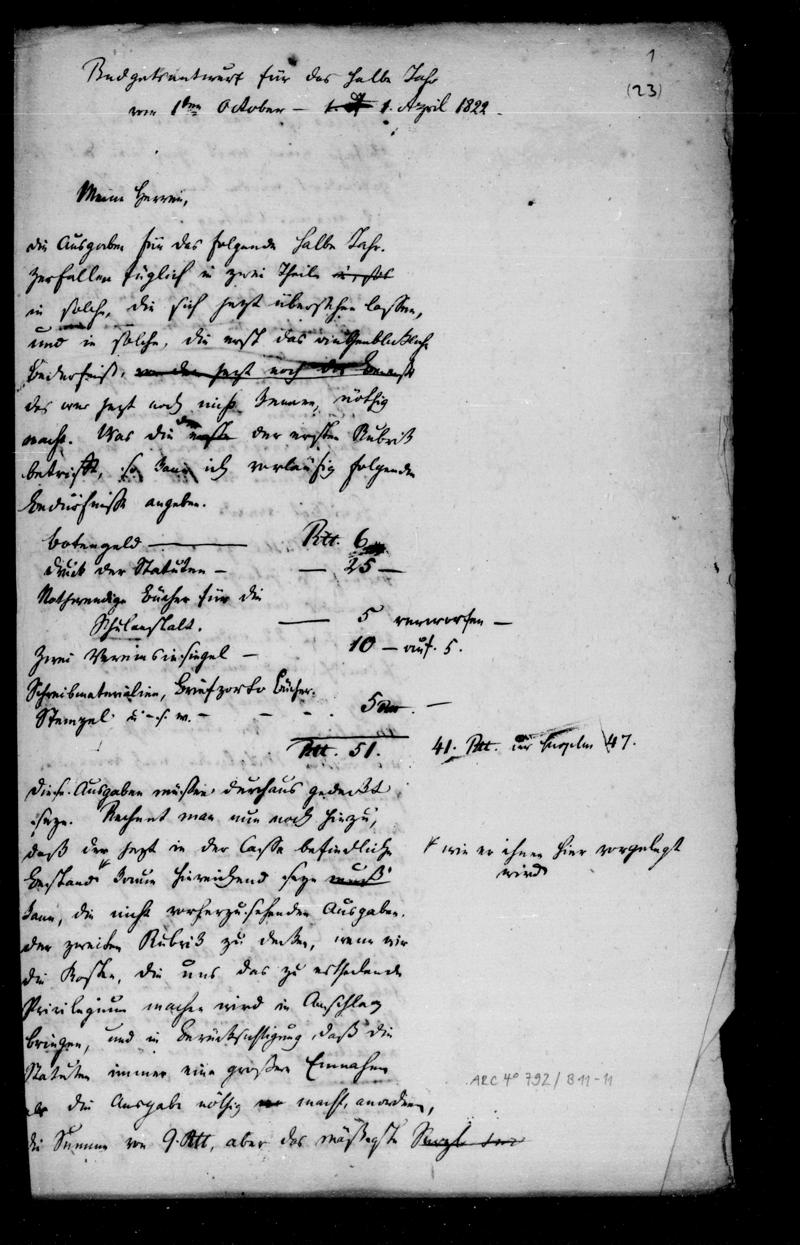 1
(23)
Budgetsentwurf für das halbe Jahr
vom 1ten October – 1. April 1822.
Meine Herren,
die Ausgaben für das folgende halbe Jahr.
zerfallen füglich in zwei Theile
in solche, die sich jezt übersehen lassen,
und in solche, die erst das augenblickliche
Bedürfniß,
das wir jezt noch nicht kennen, nöthig
macht. Was die der ersten Rubrik
betrifft, so kann ich vorläufig folgende
Bedürfnisse angeben.
Botengeld — Rtt. 6
Druck der Statuten – — 25 —
Nothwendige Bücher für die
Schulanstalt. — 5 verworfen —
Zwei Vereinssiegel – 10 – auf 5.
Schreibmaterialien, Briefporto Bücher.
Stempel u. s. w. – – – 5 —
Rtt. 51. 41. Rtt. 47.
Diese Ausgaben müssen durchaus gedeckt
seyn. Rechnet man nun noch hinzu,
daß der jezt in der Casse befindliche
Bestand kaum hinreichend seyn
wie er ihnen hier vorgelegt
wird
kann, die nicht vorherzusehenden Ausgaben.
der zweiten Rubrik zu decken, wenn wir
die Kosten, die uns das zu ertheilende
Privilegium machen wird in Anschlag
bringen, und in Berücksichtigung, daß die
Statuten immer eine größere Einnahme
als die Ausgabe nöthig macht,
die Summe von 9. Rtt, aber das mäßigste
ARC 4° 792 / B 11-11